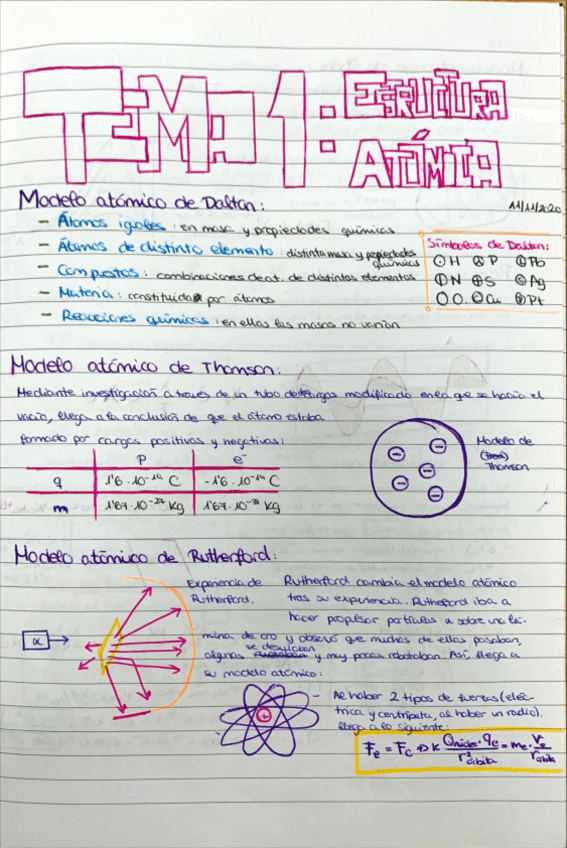 TEMA 1: ESTRUCTURA
ATÓMICA
11/11/2020
Modelo atómico de Dalton:
- Átomos iguales: en masa y propiedades químicas
- Átomos de distinto elemento: distinta masa y propiedades químicas
- Compuestos: combinaciones de at. de distintos elementos
- Materia: constituida por átomos
- Reacciones químicas: en ellas las masas no varían
Símbolos de Dalton:
H P Pb
N S Ag
O Cu Pt
Modelo atómico de Thomson:
Mediante investigación a traves de un tubo de descargas modificado en la que se hacía el
vacío, llega a la conclusión de que el átomo estaba
formado por cargas positivas y negativas:
p e⁻
q 1'6·10⁻¹⁹ C -1'6·10⁻¹⁹ C
m 1'67·10⁻²⁷ kg 1'67·10⁻³¹ kg
Modelo de
Thomson
Modelo atómico de Rutherford:
Experiencia de
Rutherford.
α
Rutherford cambia el modelo atómico
tras su experiencia. Rutherford iba a
hacer propulsar partículas α sobre una lá-
mina de oro y observó que muchas de ellas pasaban,
algunas se desviaban y muy pocas rebotaban. Así, llega a
su modelo atómico:
+
- Al haber 2 tipos de fuerzas (eléc-
trica y centrípeta, al haber un radio).
llega a lo siguiente:
Fe = Fc → K Qnúcleo · qe / r² órbita = me · ve / r órbita